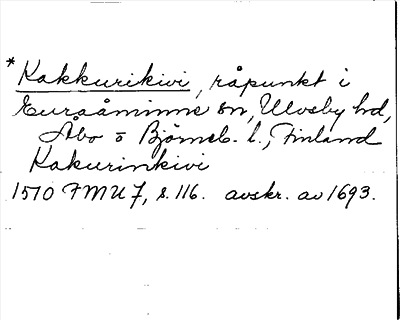 * Kakkurikivi, råpunkt i
Euraåminne sn, Ulvsby hd,
Åbo o Björneb. l., Finland
Kakurinkivi
1570 FMU 7, s. 116. avskr. av 1693.